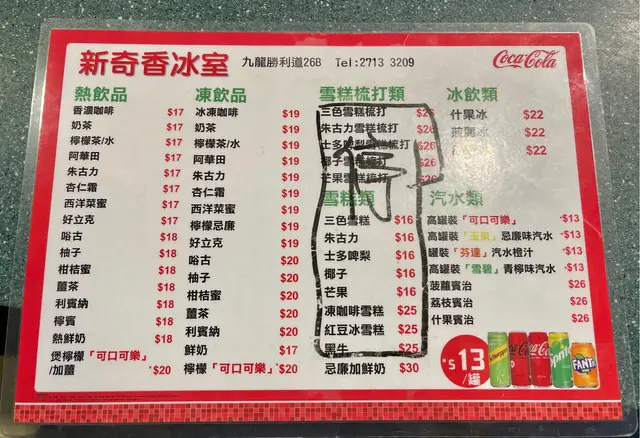 新奇香冰室 九龍勝利道26B Tel:2713 3209 Coca-Cola
熱飲品
香濃咖啡 $17
奶茶 $17
檸檬茶/水 $17
阿華田 $17
朱古力 $17
杏仁霜 $17
西洋菜蜜 $17
好立克 $17
唂古 $18
柚子 $18
柑桔蜜 $18
薑茶 $18
利賓納 $18
檸賓 $18
熱鮮奶 $18
煲檸檬「可口可樂」
/加薑 *$20
凍飲品
冰凍咖啡 $19
奶茶 $19
檸檬茶/水 $19
阿華田 $19
朱古力 $19
杏仁霜 $19
西洋菜蜜 $19
檸檬忌廉 $19
好立克 $19
唂古 $20
柚子 $20
柑桔蜜 $20
薑茶 $20
利賓納 $20
鮮奶 $17
檸檬「可口可樂」 *$20
雪糕梳打類
三色雪糕梳打
朱古力雪糕梳打 $26
士多啤梨雪糕梳打 $26
椰子雪糕梳打 $26
芒果雪糕梳打 $26
停
雪糕類
三色雪糕 $16
朱古力 $16
士多啤梨 $16
椰子 $16
芒果 $16
凍咖啡雪糕 $25
紅豆冰雪糕 $25
黑牛 $25
忌廉加鮮奶 $30
冰飲類
什果冰 $22
菠蘿冰 $22
$22
汽水類
高罐裝「可口可樂」 *$13
高罐裝「玉泉」忌廉味汽水 *$13
罐裝「芬達」汽水橙汁 *$13
高罐裝「雪碧」青檸味汽水 *$13
菠蘿賓治 $26
荔枝賓治 $26
什果賓治 $26
*$13
/罐
Schweppes
Coca-Cola
Sprite
FANTA